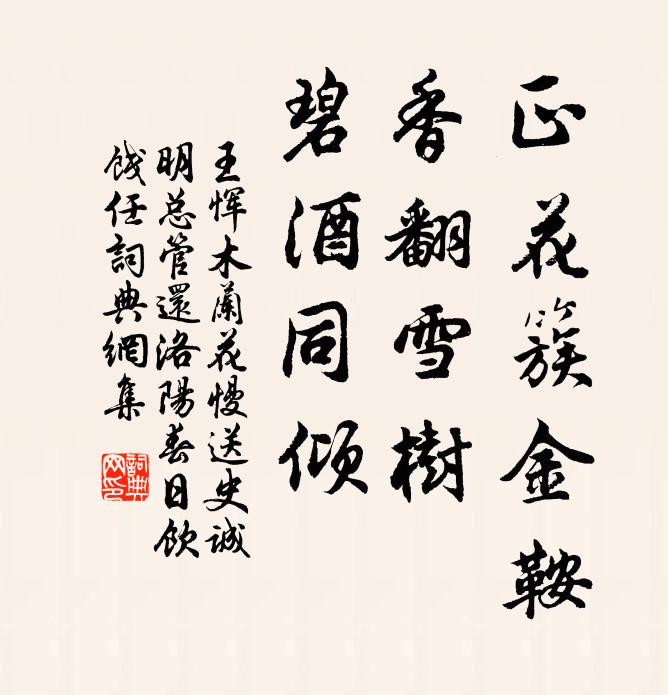 正花簇金鞍
香翻雪樹
碧酒同傾
王惲木蘭花慢送史誠
明总管還洛陽春日飲
餞任詞典網集
詞典
网印